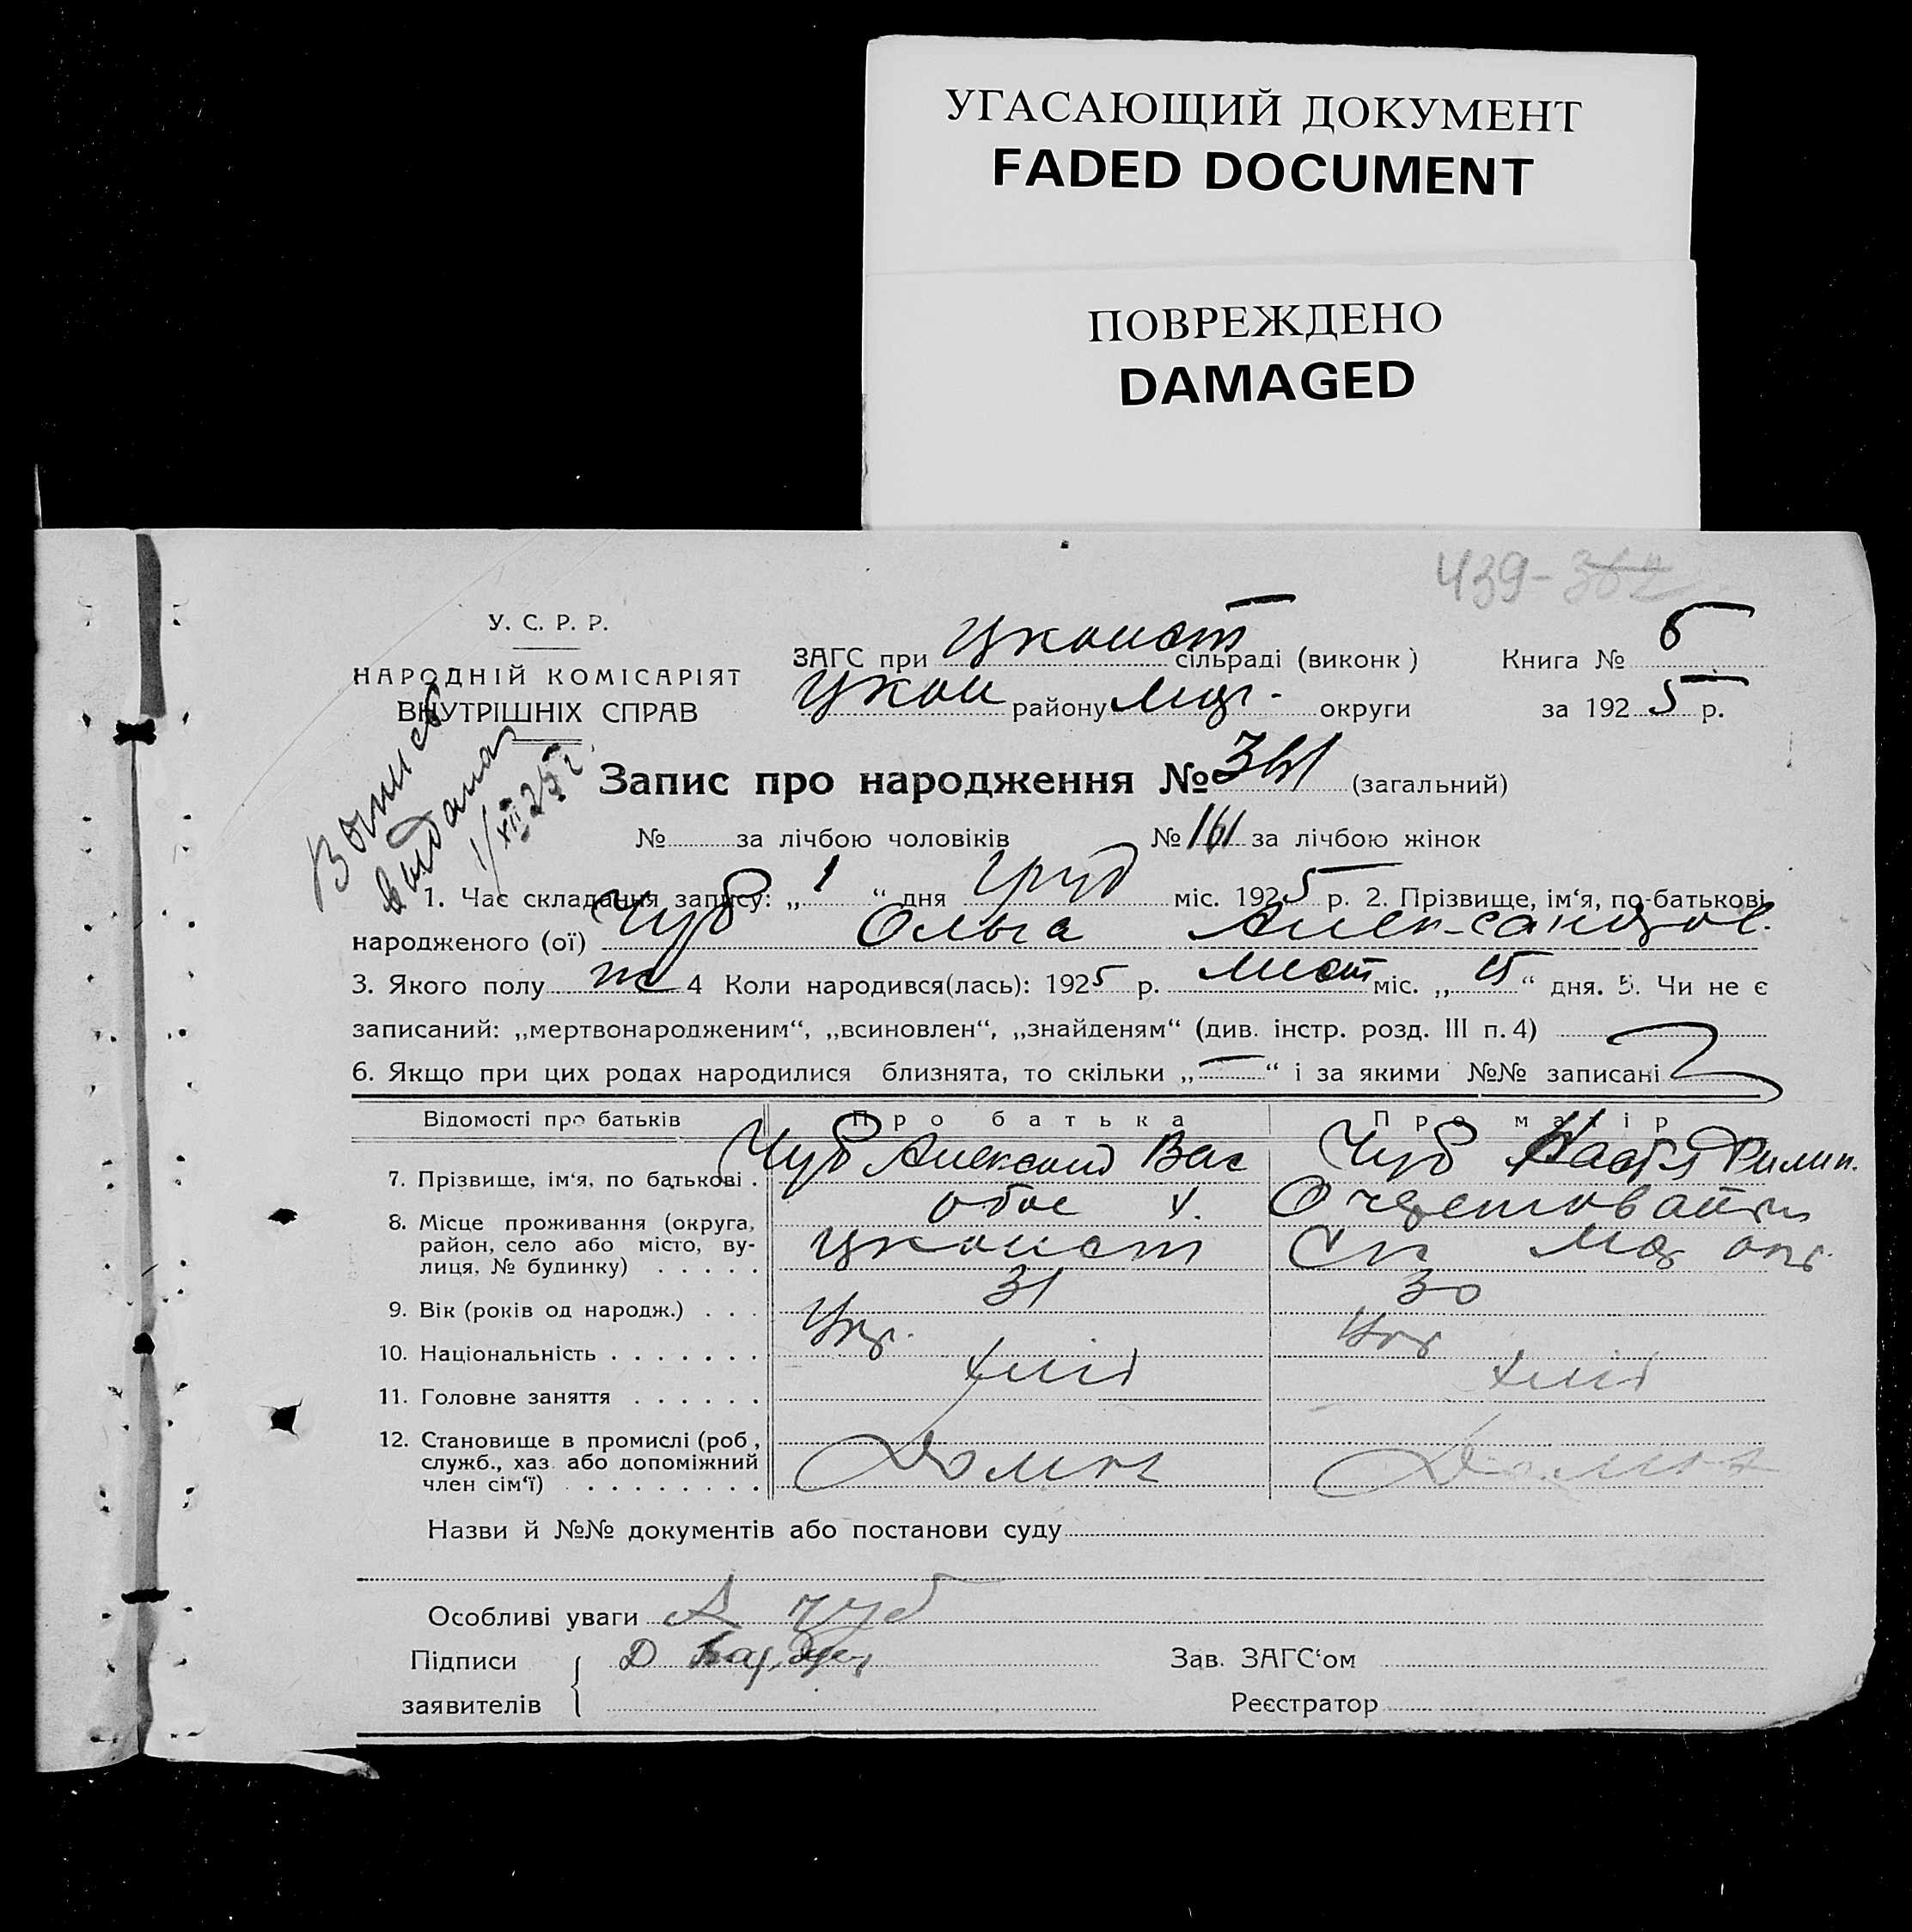 УГАСАЮЩИЙ ДОКУМЕНТ
FADED DOCUMENT
ПОВРЕЖДЕНО
DAMAGED
439-
У. С. Р. Р.
НАРОДНІЙ КОМІСАРІЯТ
ВНУТРІШНІХ СПРАВ
ЗАГС при сільраді (виконк) Книга № 6
району округи за 1925 р.
Запис про народження № (загальний)
№ за лічбою чоловіків № 161 за лічбою жінок
выдана
1/XII 25 г
1. Час складання запису: „ 1 “ дня груд міс. 1925 р. 2. Прізвище, ім‘я, по-батькові
народженого (ої) Чуб Ольга Александров.
3. Якого полу ж 4 Коли народився(лась): 1925 р. лист міс. „ 15 “ дня. 5. Чи не є
записаний: „мертвонародженим“, „всиновлен“, „знайденям“ (див. інстр. розд. III п. 4)
6. Якщо при цих родах народилися близнята, то скільки „ — “ і за якими №№ записані
Відомості про батьків Про батька Про матір
7. Прізвище, ім‘я, по батькові . Чуб Александ Вас Чуб Настя Филип.
8. Місце проживання (округа, район, село або місто, вулиця, № будинку) . . . . . обое
9. Вік (років од народж.) . . . 31 30
10. Національність . . . . . . . Укр. Укр
11. Головне заняття . . . . . . хліб хліб
12. Становище в промислі (роб., служб., хаз. або допоміжний член сім‘ї) . . . . . . . . .
Назви й №№ документів або постанови суду
Особливі уваги А Чуб
Підписи
заявителів
Д
Зав. ЗАГС‘ом
Реєстратор